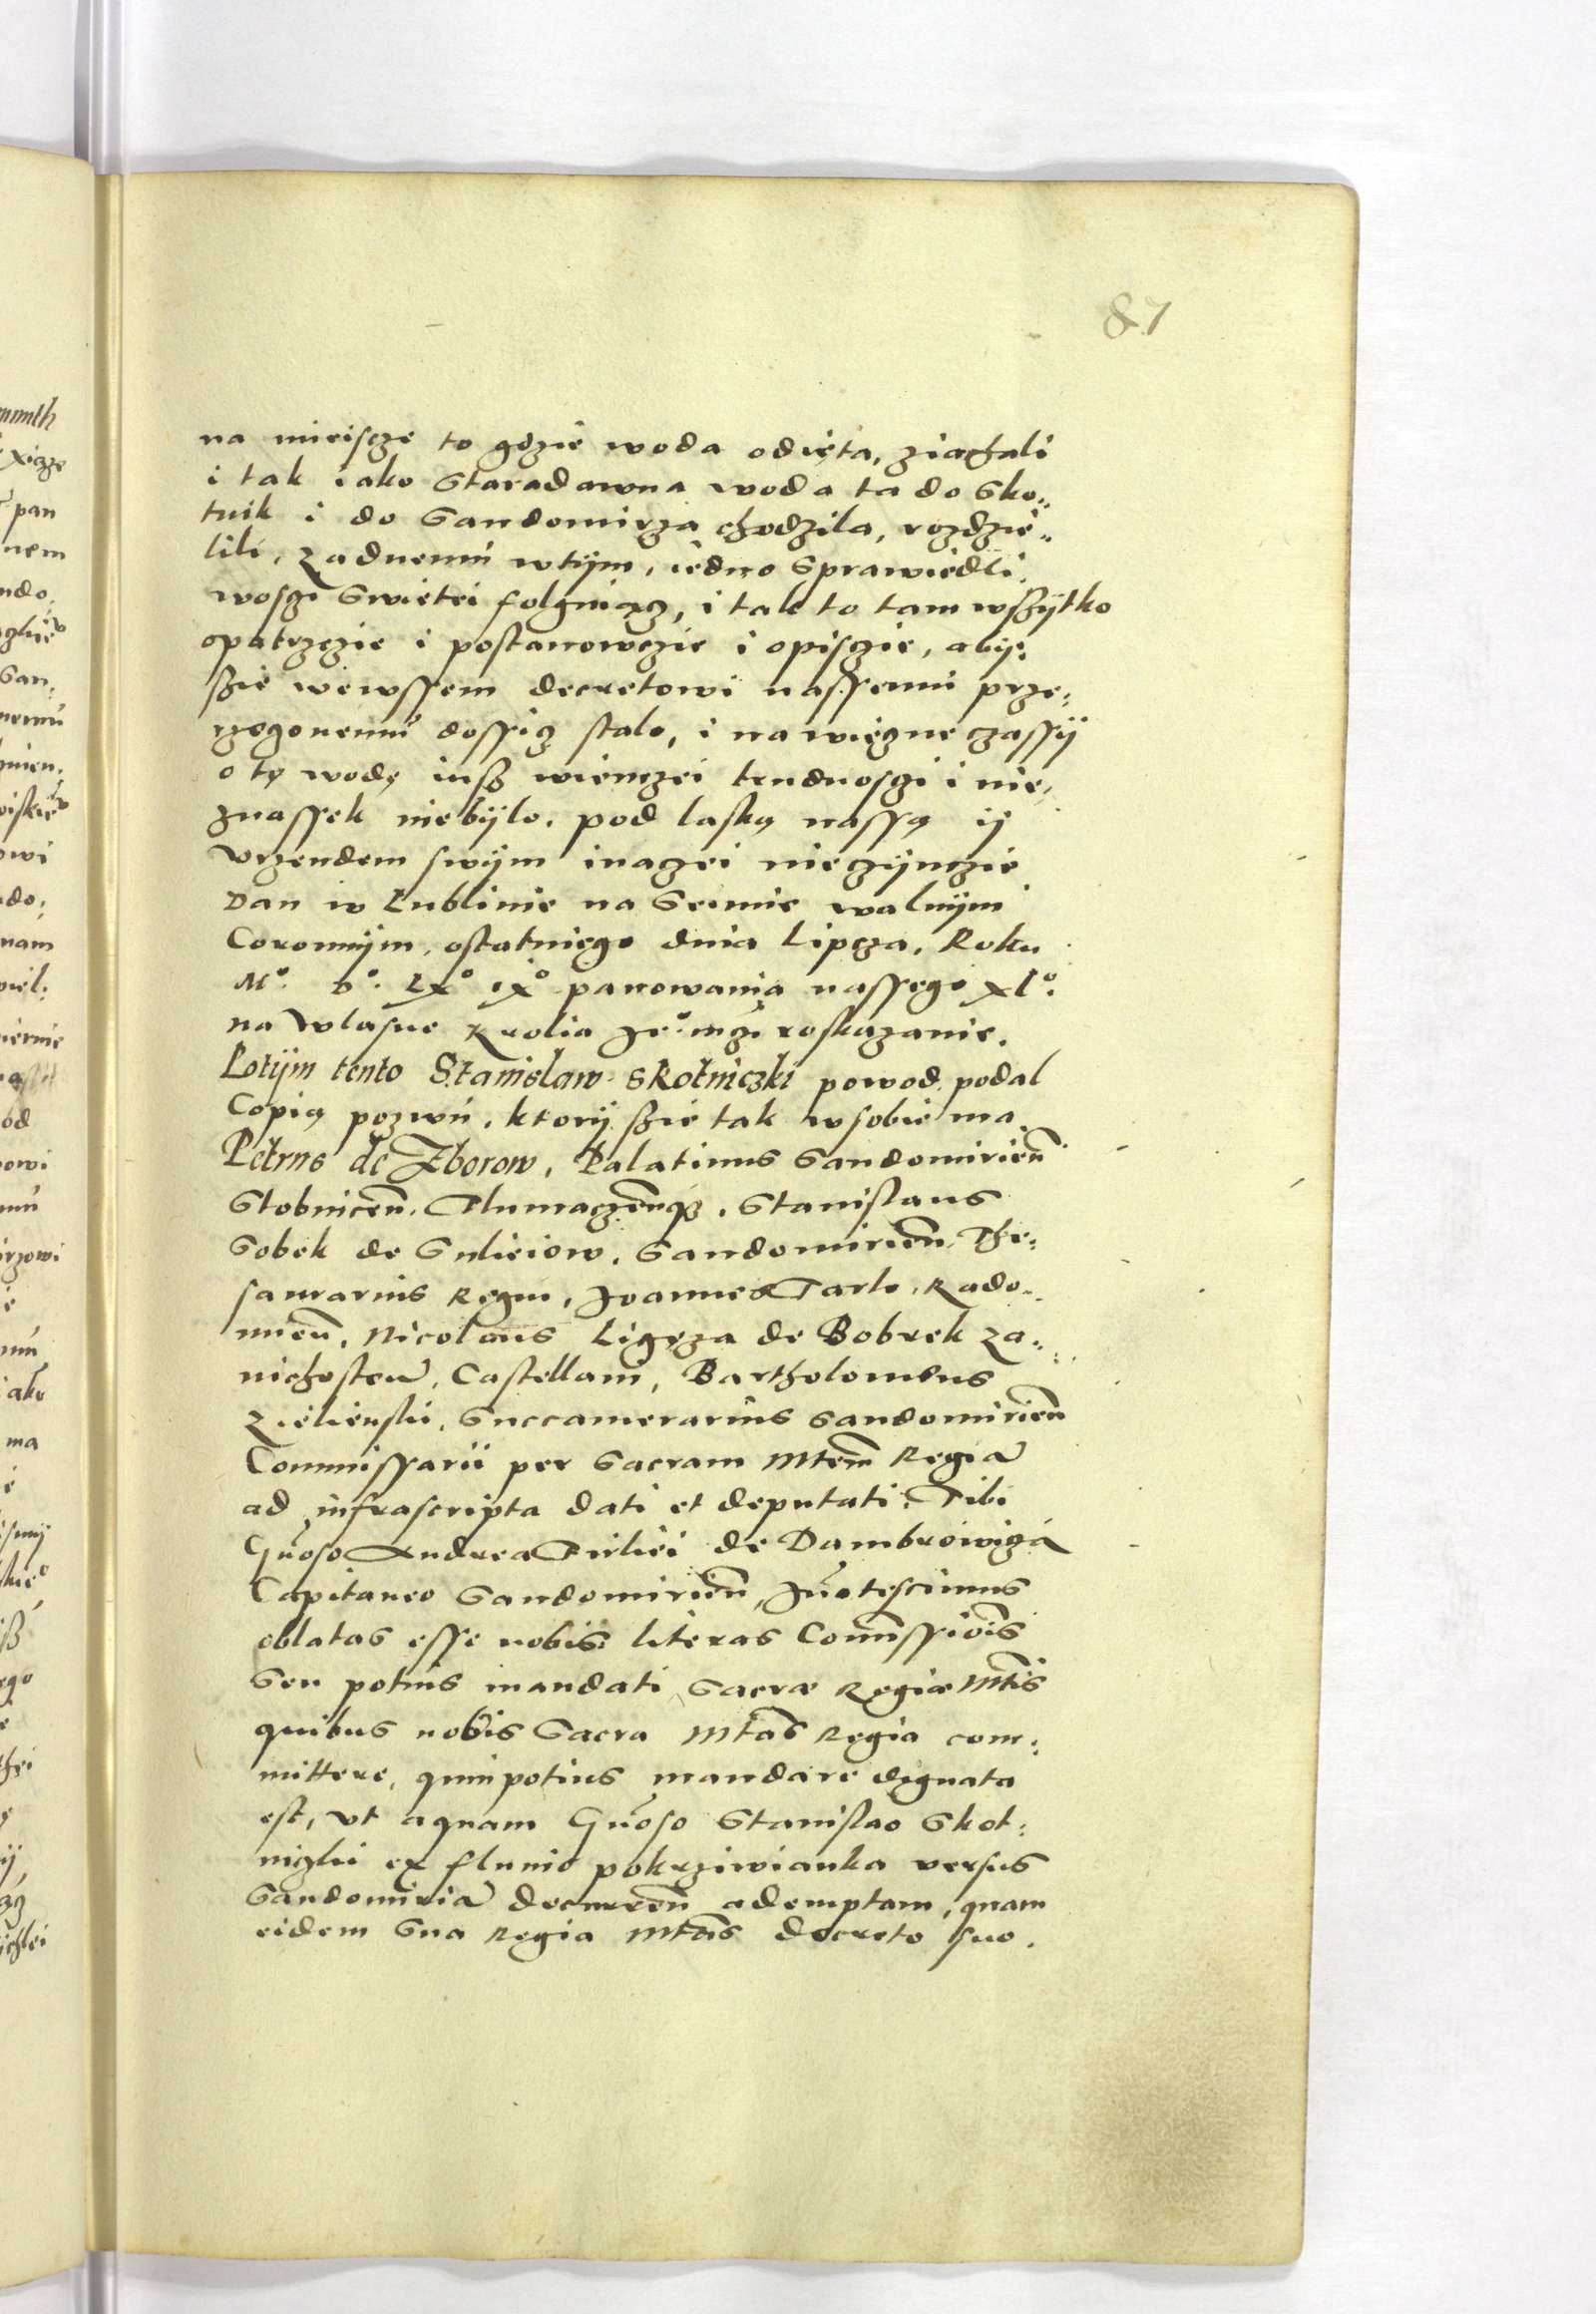 87
na mieiscze to gdzie woda odięta, ziachali
i tak iako Staradawna woda ta do Sko„
tnik i do Sandomirza chodzila, rozdzie„
lili, Zadnemú wtÿm, iedno Sprawiedli
wosczi Swiętei folgniącz, i tak to tam wszÿtko
opatrzczie i postanowczie i opisczie, abÿ:
szie wewssem decretowi nassemú prze:
rzegonemú dossicz stalo, i na wieczne czassÿ
o tę wodę iusz wienczei trudnosczi i nie:
znassek niebÿlo. pod laską nassą ÿ
vrzendem swÿm inaczei nieczÿnczie
Dan w Lublinie na Seimie walnÿm
Coronnÿm, ostatniego dnia Lipcza, Roku
Mº. Dº. LXº IXº panowania nassego XLº.
na własne Krolia Jeº mczi roskazanie.
Potÿm tento Stanislaw Skotniczki powod podal
Copią pozwú, ktorÿ szie tak wsobie ma.
Petrus de Zborow, Palatinus Sandomirien̄
Stobnicen̄. Tlumaczen̄q₃, Stanislaus
Sobek de Sulieiow, Sandomirien̄, The:
saurarius Regni, Joannes Tarlo, Rado„
mien̄, Nicolaus Ligęza de Bobrek Za„
nichosten̄, Castellani, Bartholomeus
Zielienski, Succamerarius Sandomirien̄
Commissarii per Sacram Mtem̄ Regiā
ad infrascripta dati et deputati, Tibi
Gn̄oso Andreæ Firliei de Dambrowicza
Capitaneo Sandomirien̄, Jn̄otescimus
oblatas esse nobis literas Com̄issiōis
Seu potius mandati Sacræ Regiæ Mtis̄
quibus nobis Sacra Mtās Regia com:
mittere, quinpotius mandare dignata
est, vt aquam Gn̄oso Stanislao Skot:
niczki ex fluuio pokrziwianka versus
Sandomiriā decurren̄ ademptam, quam
eidem Sua Regia Mtās Decreto suo.